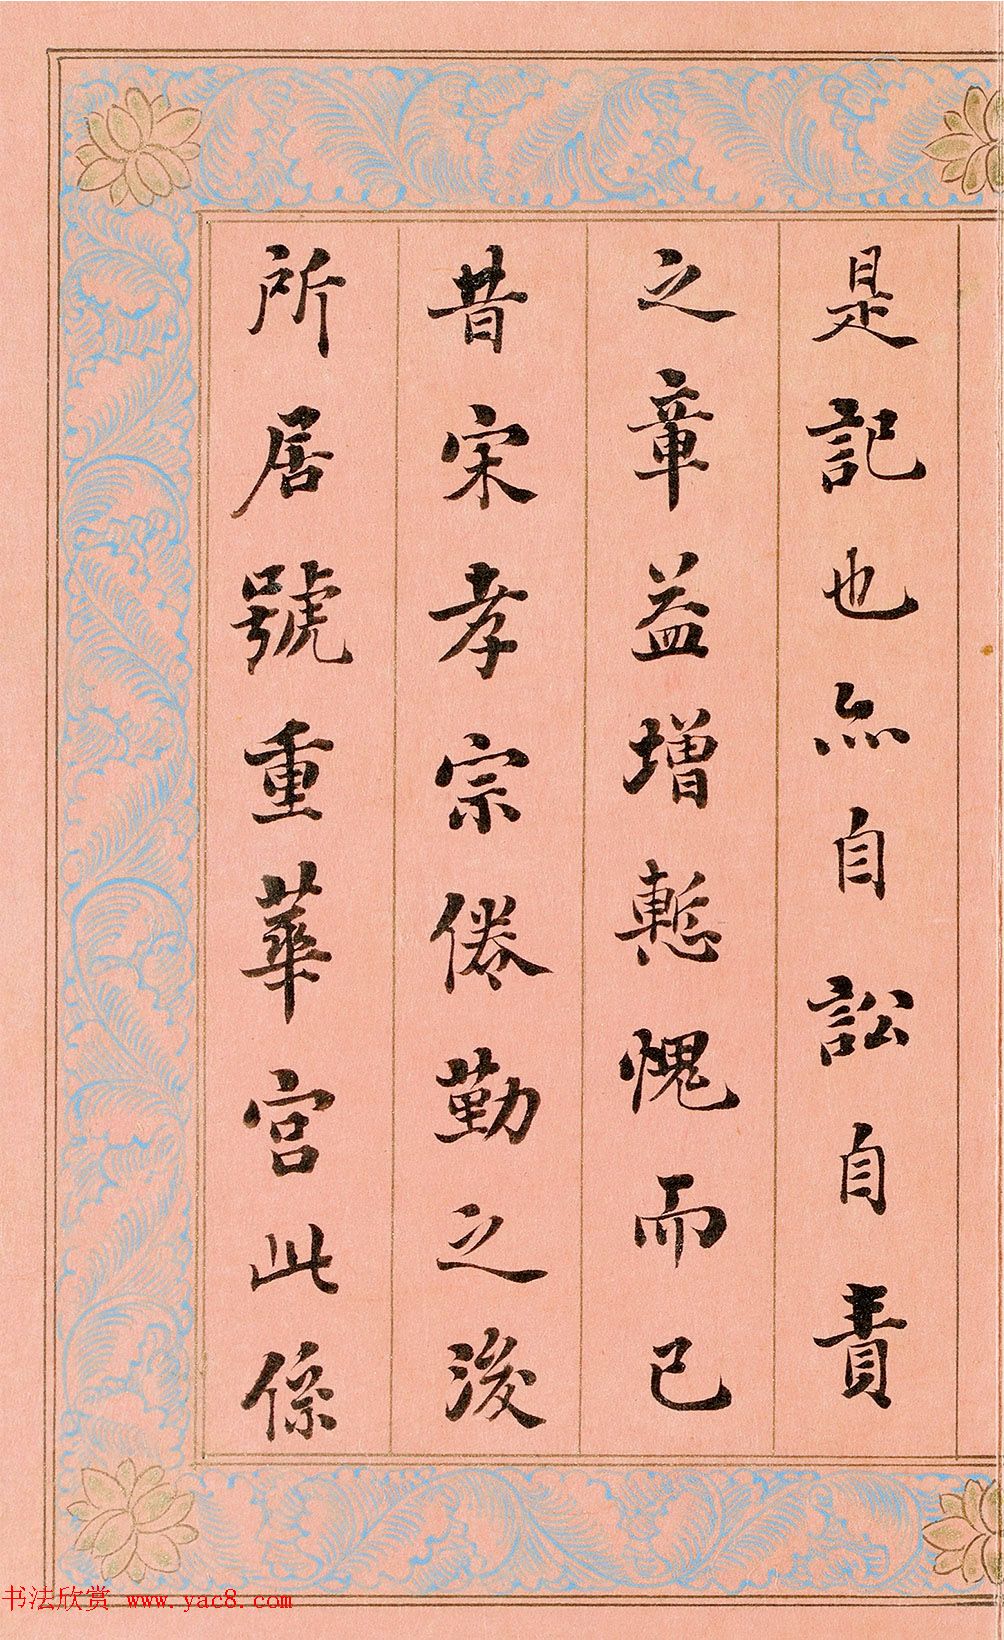 是記也亦自訟自責
之章益增慙愧而已
昔宋孝宗倦勤之後
所居號重華宮此係
书法欣赏 www.yac8.com